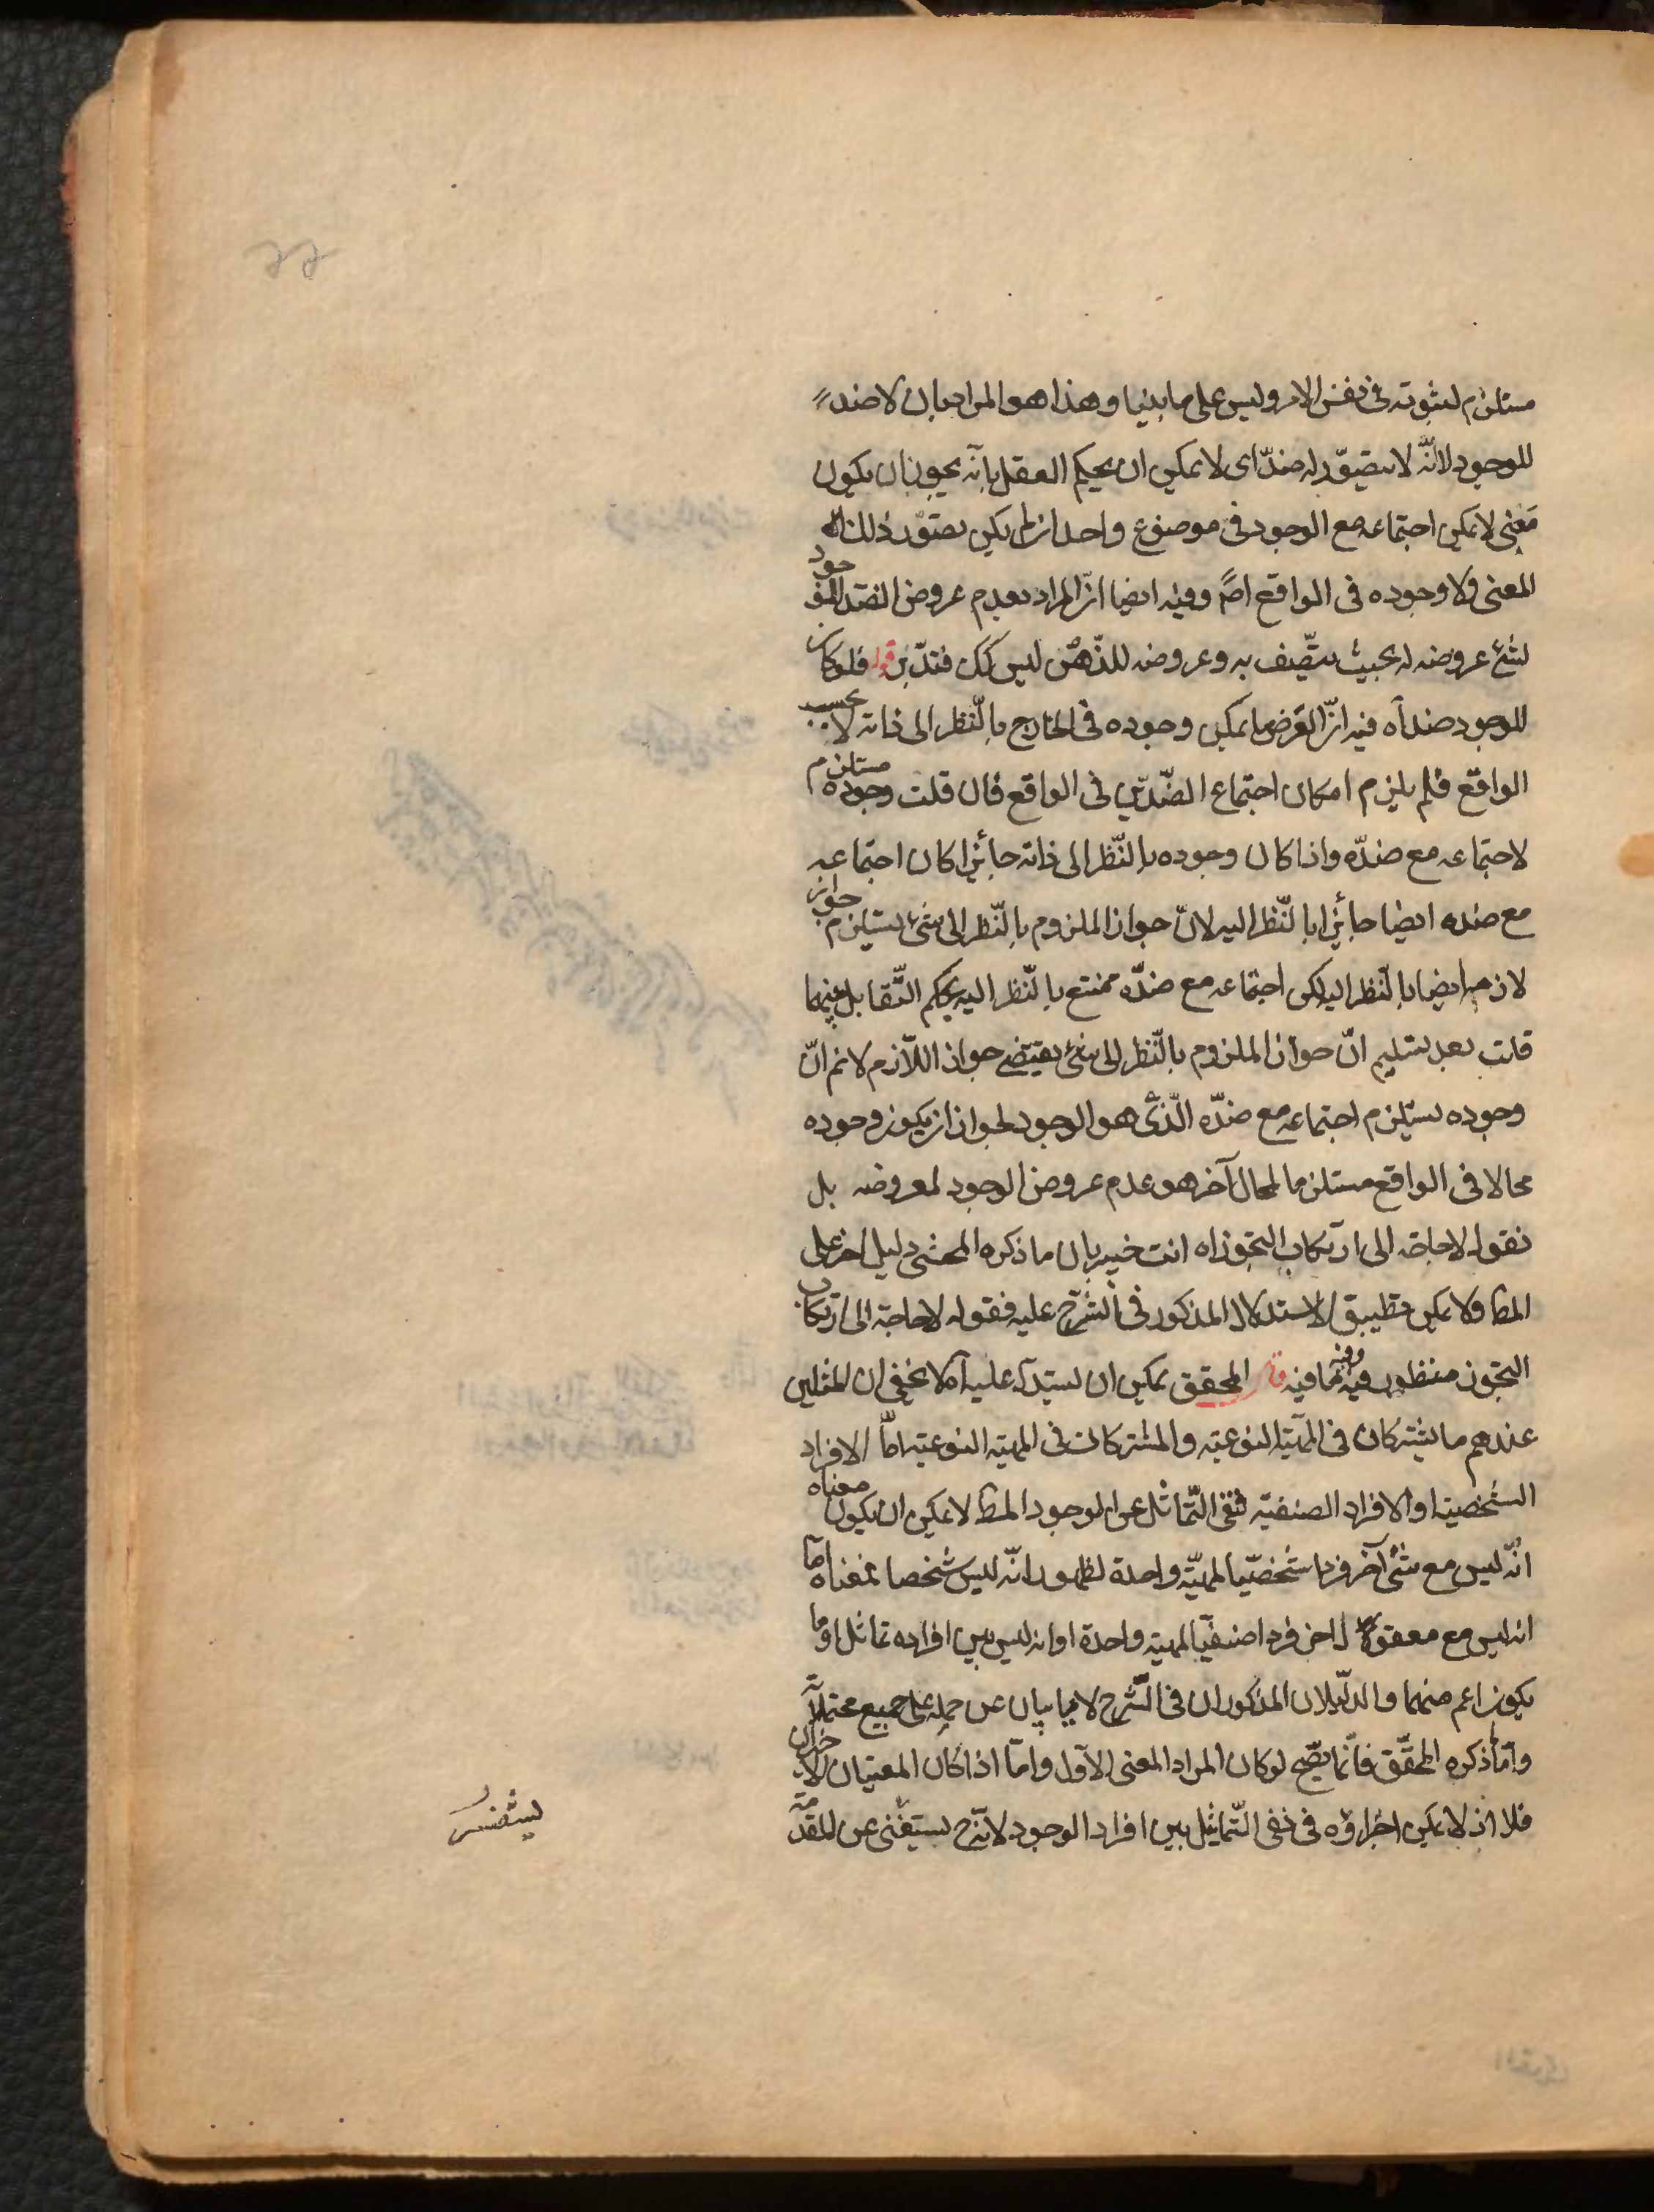 مستلزم لثبوته فى نفس الامر وليس على ما بينا وهذا هو المراد بان لا ضد
للوجود لانّه لا يتصوّر له ضدّ اى لا يمكن ان يحكم العقل بانّه يجوز ان يكون
معنى لا يمكن اجتماعه مع الوجود فى موضوع واحد ان لم يكن بتصوّر ذلك
المعنى ولا وجوده فى الواقع اصلا وفيه ايضا انّ المراد بعدم عروض الضد الموجود
لشئ عروضه له بحيث يتّصف به وعروضه للذّهن ليس كك فتدبّر قوله فلو كان
للوجود ضد آه فيه انّ العرض ما يمكن وجوده فى الخارج بالنّظر الى ذاته لا بحسب
الواقع فلم يلزم امكان اجتماع الضّدّين فى الواقع فان قلت وجوده مستلزم
لاجتماعه مع ضدّه واذا كان وجوده بالنّظر الى ذاته جائزا كان اجتماعه
مع ضده ايضا جائزا بالنّظر اليه لانّ جواز الملزوم بالنّظر الى شئ يستلزم جواز
لازمه ايضا بالنّظر اليه لكن اجتماعه مع ضدّه ممتنع بالنّظر اليه بحكم التّقابل بينهما
قلت بعد تسليم انّ جواز الملزوم بالنّظر الى شئ يقتضى جواز اللّازم لا نم انّ
وجوده يستلزم اجتماعه مع ضدّه الّذى هو الوجود لجواز ان يكون وجوده
محالا فى الواقع مستلزما لمحال آخر هو عدم عروض الوجود لمعروضه بل
نقول لا حاجة الى ارتكاب التجوز اه انت خبير بان ما ذكره المحشى دليل اخر على
المط ولا يمكن تطبيق الاستدلال المذكور فى الشرح عليه فقوله لا حاجة الى ارتكاب
التجوز منظور فيه وفيه ما فيه قال المحقق يمكن ان يستدل عليه آه لا يخفى ان المثلين
عندهم ما يشتركان فى المهيّة النوعية والمشتركان فى المهية النوعية امّا الافراد
الشخصية او الافراد الصنفية فنفى التّماثل عن الوجود المط لا يمكن ان يكون معناه
انّه ليس مع شئ آخر فردا شخصيّا لمهيّة واحدة لظهور انّه ليس شخصا فمعناه امّا
انه ليس مع معقول اخر فردا صنفيّا لمهية واحدة او انه ليس بين افراده تماثل او ما
يكون اعم منهما والدّليلان المذكوران فى الشّرح لا يأبيان عن حمله على جميع محتملاته
وامّا ما ذكره المحقّق فانّما يصّح لو كان المراد المعنى الاوّل وامّا اذا كان المعنيان الاخران
فلا اذ لا يمكن اجراؤه فى نفى التّماثل بين افراد الوجود لانّه ح يستغنى عن المقدّمة